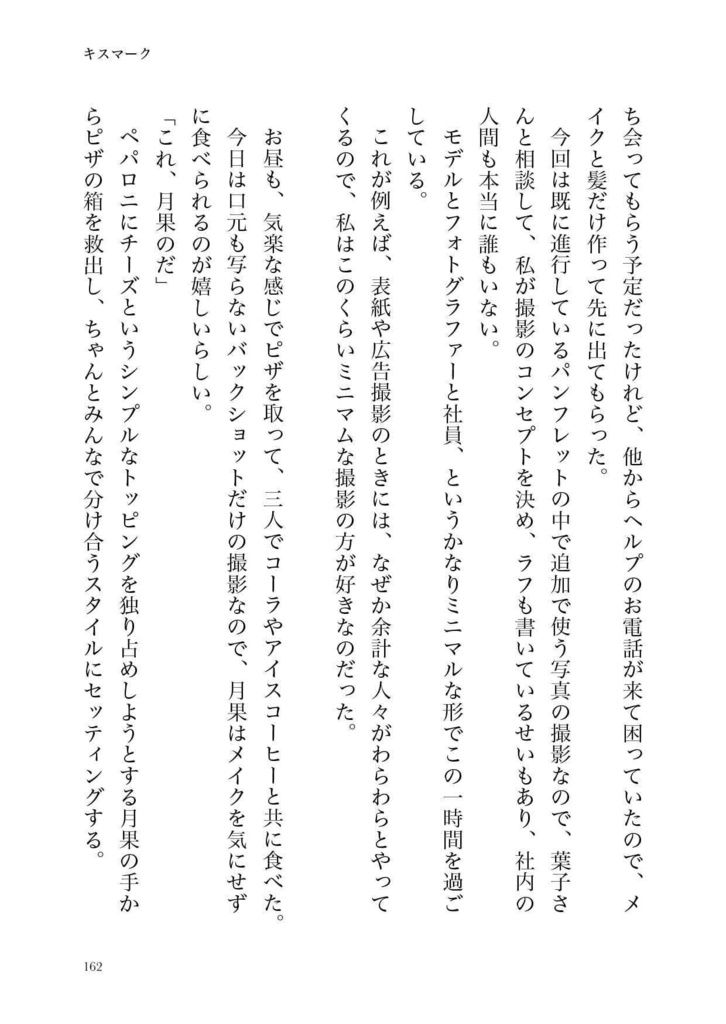 キスマーク
ち会ってもらう予定だったけれど、他からヘルプのお電話が来て困っていたので、メ
イクと髪だけ作って先に出てもらった。
今回は既に進行しているパンフレットの中で追加で使う写真の撮影なので、葉子さ
んと相談して、私が撮影のコンセプトを決め、ラフも書いているせいもあり、社内の
人間も本当に誰もいない。
モデルとフォトグラファーと社員、というかなりミニマルな形でこの一時間を過ご
している。
これが例えば、表紙や広告撮影のときには、なぜか余計な人々がわらわらとやって
くるので、私はこのくらいミニマムな撮影の方が好きなのだった。
お昼も、気楽な感じでピザを取って、三人でコーラやアイスコーヒーと共に食べた。
今日は口元も写らないバックショットだけの撮影なので、月果はメイクを気にせず
に食べられるのが嬉しいらしい。
「これ、月果のだ」
ペパロニにチーズというシンプルなトッピングを独り占めしようとする月果の手か
らピザの箱を救出し、ちゃんとみんなで分け合うスタイルにセッティングする。
162